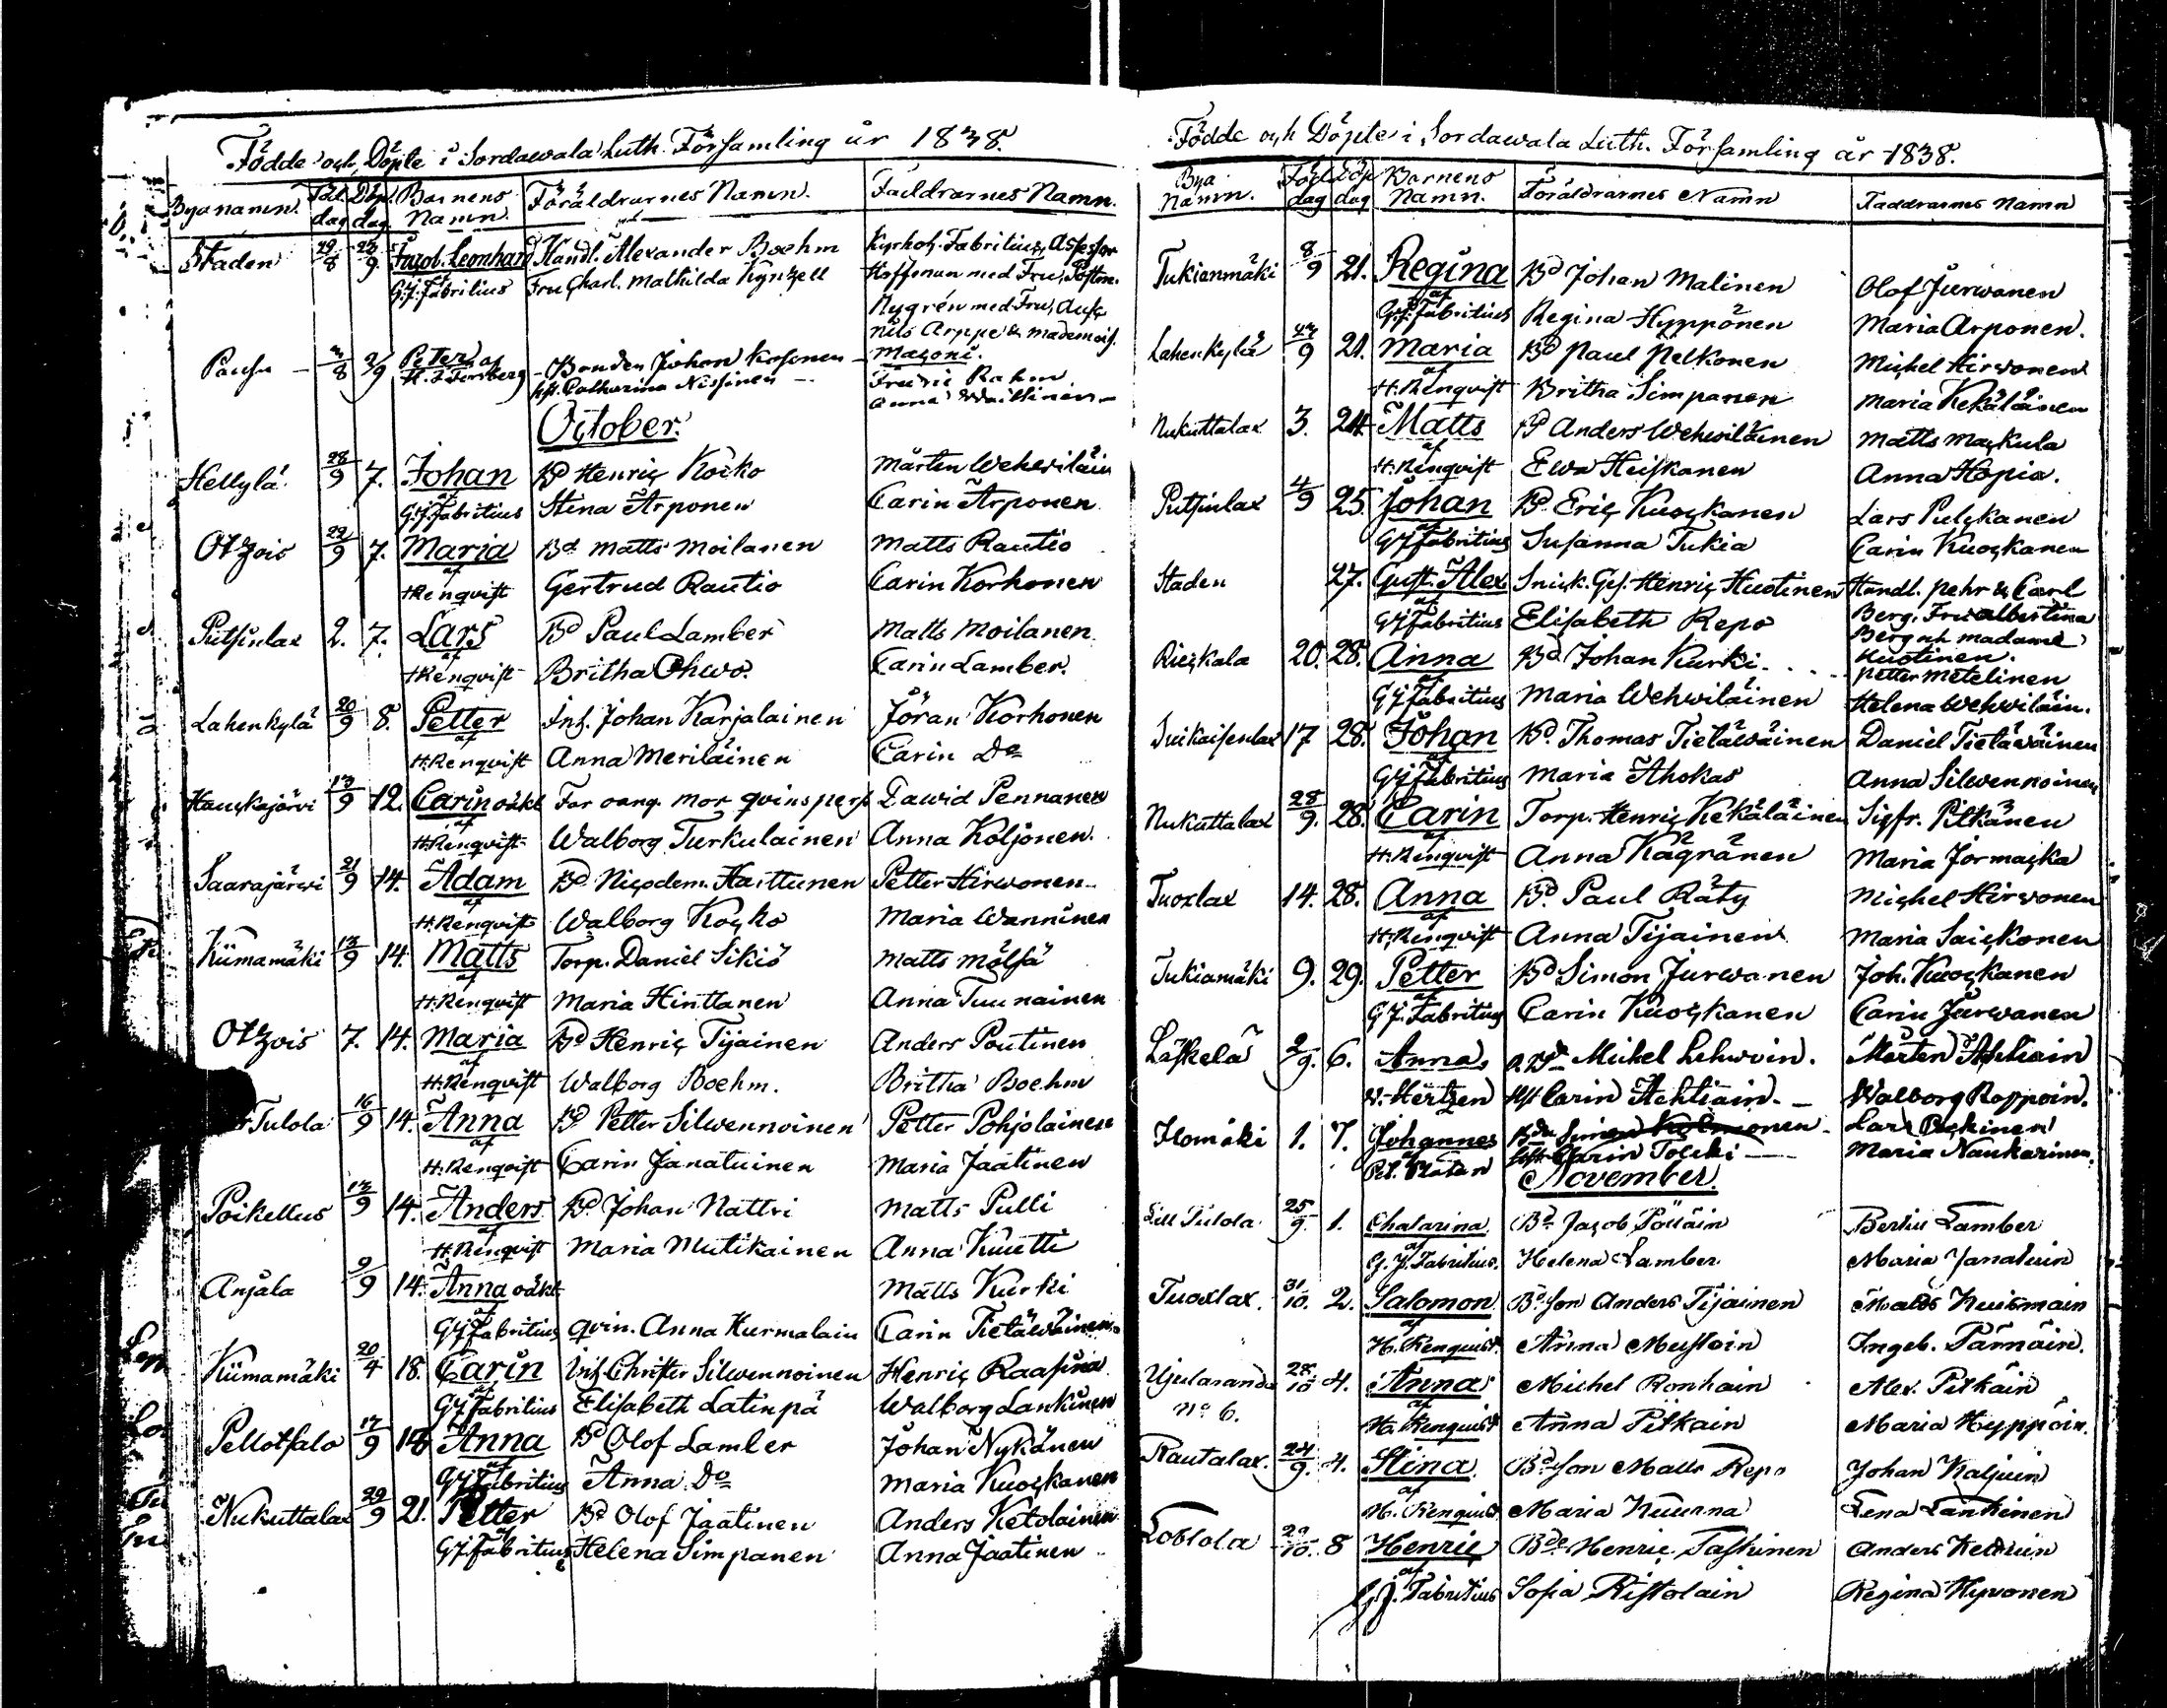 Födde och Döpte i Sordawala Luth. Församling år 1838.
Byanamn. Föd. dag Döp. dag Barnens Namn. Föräldrarnes Namn. Faddrarnes Namn.
Staden 29/8 23/9 Jacob Leonhard Handl. Alexander Boehm Kyrkoh. Fabritius, Assessor
G.J. Fabritius Fru Charl. Mathilda Kyntzell Hoffman med Fru, Postm.
Nygrén med Fru, Ausc.
Nils Arppe & mademois.
Pausu 8 2/9 Petter af Bonden Johan Kosonen Masoni.
H. J. Forsberg hst. Catharina Nissinen Fredric Rahm
Anna Waittinen
October.
Hellylä 28/9 7. Johan Bd Henric Kocko Mårten Wehwiläin
af G.J. Fabritius Stina Arponen Carin Arponen
Otzois 22/9 7. Maria Bd Matts Moilanen Matts Rautio
af H. Renqvist Gertrud Rautio Carin Korhonen
Putsinlax 2. 7. Lars Bd Paul Lamber Matts Moilanen
af H. Renqvist Britha Ohwo. Carin Lamber.
Lahenkylä 20/9 8. Petter Inh. Johan Karjalainen Jöran Korhonen
af H. Renqvist Anna Meriläinen Carin Do
Hauckajärvi 13/9 12. Carin oäkt Far oang. Mor qvinspers Dawid Pennanen
af H. Renqvist Walborg Turkulainen Anna Koljonen.
Saarajärwi 21/9 14. Adam Bd Nicodem. Harttunen Petter Hirwonen
af H. Renqvist Walborg Kocko Maria Wanninen
Kiimamäki 13/9 14. Matts Torp. Daniel Sikiö Matts Mölsä
af H. Renqvist Maria Hinttanen Anna Tuunainen
Otzois 7. 14. Maria Bd Henric Tijainen Anders Poutinen
af H. Renqvist Walborg Boehm. Britha Boehm
Tulola 16/9 14. Anna Bd Petter Silwennoinen Petter Pohjolainen
af H. Renqvist Carin Janatuinen Maria Jaatinen
Poikellus 13/9 14. Anders Bd Johan Nättri Matts Pulli
af H. Renqvist Maria Mutikainen Anna Kuutti
Anjala 9/9 14. Anna oäkt Matts Kurki
af G.J. Fabritius qvin. Anna Hurmalain Carin Tietäwäinen
Kiimamäki 20/4 18. Carin Inh. Christer Silwennoinen Henric Raasina
af G.J. Fabritius Elisabeth Latinpä Walborg Lankinen
Pellotsalo 17/9 18 Anna Bd Olof Lamber Johan Nykänen
af G.J. Fabritius Anna Do Maria Kuockanen
Nukuttalax 29/9 21. Petter Bd Olof Jäätinen Anders Ketolainen
af G.J. Fabritius Helena Simpanen Anna Jaatinen
Födde och Döpte i Sordawala Luth. Församling år 1838.
Bya Namn. Föd. dag Döp. dag Barnens Namn. Föräldrarnes Namn Faddrarnes Namn
Tukianmäki 8/9 21. Regina Bd Johan Malinen Olof Jurwanen
af G.J. Fabritius Regina Hyppönen Maria Arponen.
Lahenkylä 27/9 21. Maria Bd Paul Pelkonen Michel Hirwonen
af H. Renqvist Britha Simpanen Maria Kekäläinen
Nukuttalax 3. 24. Matts Bd Anders Wehwiläinen Matts Mackula
af H. Renqvist Ewa Heiskanen Anna Hopia.
Putsinlax 4/9 25. Johan Bd Eric Kuockanen Lars Pulckanen
af G.J. Fabritius Susanna Tukia Carin Kuockanen
Staden 27. Gust. Alex Snick. Ges. Henric Huotinen Handl. Pehr & Carl
af G.J. Fabritius Elisabeth Repo Berg, Fru Albertina
Berg och madame
Rieckala 20. 28. Anna Bd Johan Kurki Huotinen.
Petter Metelinen
af G.J. Fabritius Maria Wehwiläinen Helena Wehwiläin.
Suikaisenlax 17 28. Johan Bd Thomas Tietäwäinen Daniel Tietäwäinen
af G.J. Fabritius Maria Ahokas Anna Silwennoinen
Nukuttalax 28/9. 28. Carin Torp. Henric Kekäläinen Sigfr. Pitkänen
af H. Renqvist Anna Kägränen Maria Jormacka
Tuoxlax 14. 28. Anna Bd Paul Räty Michel Hirwonen
af H. Renqvist Anna Tijainen Maria Saickonen
Tukiamäki 9. 29. Petter Bd Simon Jurwanen Joh. Kuockanen
af G.J. Fabritius Carin Kuockanen Carin Jurwanen
Läskelä 2/9. 6. Anna Michel Lehwoin. Mårten Ahtiain
v. Hertzen Hst Carin Ahtiain Walborg Roppoin.
Ilomäki 1. 7. Johannes Bdn Simon Kolmonen Lars Puckinen
af Carin Tolcki Maria Naukarinen.
November.
Lill Tulola 25/9. 1. Chatarina Bd Jacob Pöllain Bertil Lamber
af G.J. Fabritius. Helena Lamber Maria Janatuin
Tuoxlax. 31/10. 2. Salomon Bd. Son Anders Tijainen Matts Kuismain
af H. Renquist. Anna Mustoin Ingeb. Pärnäin.
Ujulasanda 28/10 4. Anna Michel Ronkain Alex. Pitkäin
No 6. af H. Renquist Anna Pitkain Maria Hyppöin.
Rautalax. 24/9. 4. Stina Bd. Son Matts Repo Johan Kaljuin
af H. Renquist Maria Kuurna Lena Lankinen
Tohlola 29/10. 8 Henric Bde Henric Taskinen Anders Ketoin
af G.J. Fabritius Sofia Ristolain Regina Hyvonen